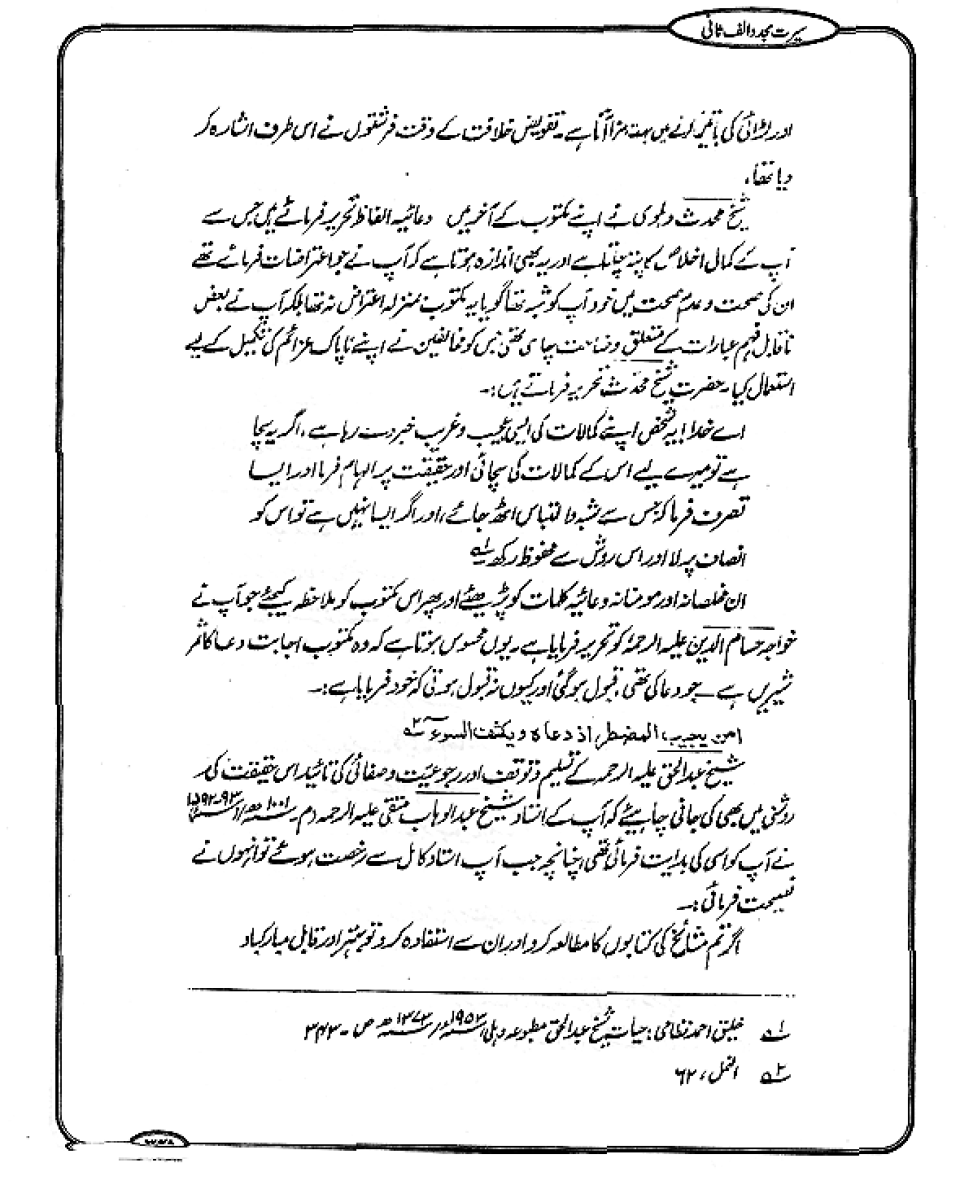 سیرت مجدد الف ثانی
اور لڑائی کی باتیں کرنے میں بہت مزا آتا ہے۔ تفویض خلافت کے وقت فرشتوں نے اس طرف اشارہ کر
دیا تھا،
شیخ محدث دہلوی نے اپنے مکتوب کے آخر میں دعائیہ الفاظ تحریر فرمائے ہیں جس سے
آپ کے کمال اخلاص کا پتہ چلتا ہے اور یہ بھی اندازہ ہوتا ہے کہ آپ نے جو اعتراضات فرمائے تھے
ان کی صحت و عدم صحت میں خود آپ کو شبہ تھا گویا یہ مکتوب بمنزلہ اعتراض نہ تھا بلکہ آپ نے بعض
ناقابل فہم عبارات کے متعلق وضاحت چاہی تھی جس کو مخالفین نے اپنے ناپاک عزائم کی تکمیل کے لیے
استعمال کیا۔ حضرت شیخ محدث تحریر فرماتے ہیں:۔
اے خدا! یہ شخص اپنے کمالات کی ایسی عجیب و غریب خبر دے رہا ہے، اگر یہ سچا
ہے تو میرے لیے اس کے کمالات کی سچائی اور حقیقت پر الہام فرما اور ایسا
تصرف فرما کہ جس سے شبہ و التباس اٹھ جائے، اور اگر ایسا نہیں ہے تو اس کو
انصاف پر لا اور اس روش سے محفوظ رکھ۔ ۱؎
ان مخلصانہ اور مومنانہ دعائیہ کلمات کو پڑھیئے اور پھر اس مکتوب کو ملاحظہ کیجئے جو آپ نے
خواجہ حسام الدین علیہ الرحمہ کو تحریر فرمایا ہے۔ یوں محسوس ہوتا ہے کہ وہ مکتوب اجابت دعا کا ثمر
شیریں ہے ـــ جو دعا کی تھی، قبول ہوگئی اور کیوں نہ قبول ہوتی کہ خود فرمایا ہے:۔
امن یجیب المضطر اذ دعاہ ویکشف السوء ۲؎
شیخ عبدالحق علیہ الرحمہ کے تسلیم و توقف اور رجوعیت و صفائی کی تائید اس حقیقت کی
روشنی میں بھی کی جانی چاہیئے کہ آپ کے استاد شیخ عبدالوہاب متقی علیہ الرحمہ دم ۱۰۰۱ھ/۹۳-۱۵۹۲ء)
نے آپ کو اسی کی ہدایت فرمائی تھی، چنانچہ جب آپ استاد کامل سے رخصت ہوئے تو انہوں نے
نصیحت فرمائی:۔
اگر تم مشائخ کی کتابوں کا مطالعہ کرو اور ان سے استفادہ کرو تو بہتر اور قابل مبارکباد
۱؎ خلیق احمد نظامی: حیات شیخ عبدالحق مطبوعہ دہلی ۱۹۵۳ء/۱۳۷۳ھ ص ۔ ۳۴۳
۲؎ النمل، ۶۲